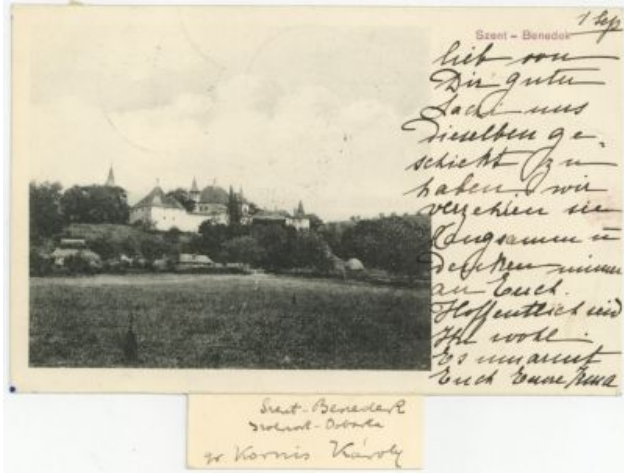 1 Sep
Szent - Benedek
lieb von
Dir guter
uns
dieselben ge-
schickt zu
haben. wir
verzehren sie
langsamm u
denken immer
an Euch.
Hoffentlich seid
Ihr wohl.
Es umarmt
Euch Eure
Szent-Benedek
Szolnok-Doboka
gr Kornis Károly